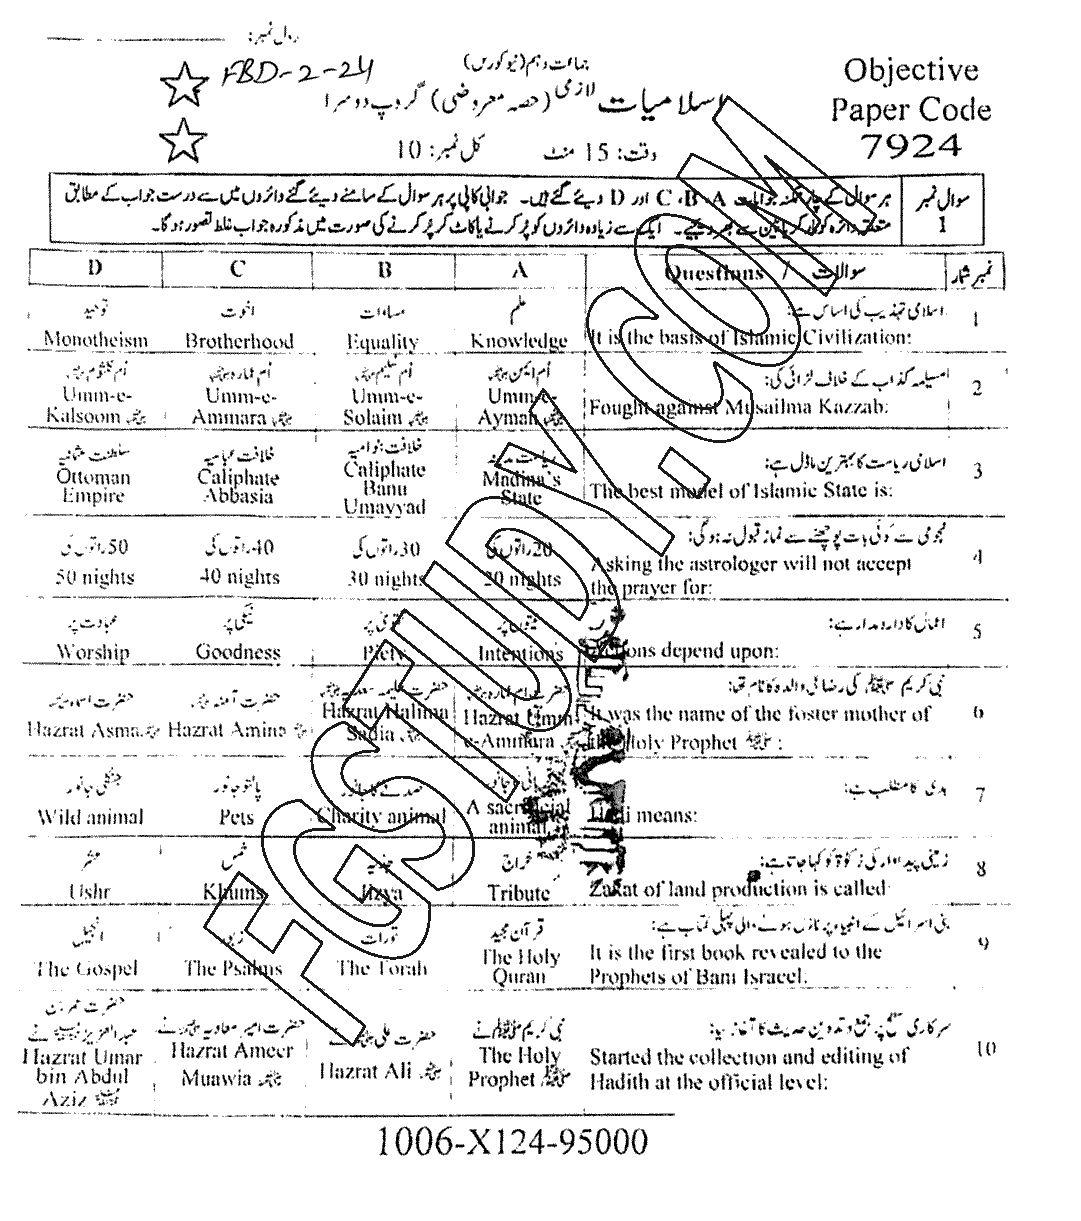 رول نمبر:
FBD-2-24
جماعت دہم (نیو کورس)
اسلامیات لازمی (حصہ معروضی) گروپ دوسرا
وقت: 15 منٹ کل نمبر: 10
Objective
Paper Code
7924
سوال نمبر 1
ہر سوال کے چار ممکنہ جوابات A، B، C اور D دیئے گئے ہیں۔ جوابی کاپی پر ہر سوال کے سامنے دیئے گئے دائروں میں سے درست جواب کے مطابق
متعلقہ دائرہ کو مارکر یا پین سے بھر دیجیے۔ ایک سے زیادہ دائروں کو پُر کرنے یا کاٹ کر پُر کرنے کی صورت میں مذکورہ جواب غلط تصور ہو گا۔
D C B A Questions / سوالات نمبر شمار
1 اسلامی تہذیب کی اساس ہے:
It is the basis of Islamic Civilization:
علم Knowledge
مساوات Equality
اخوت Brotherhood
توحید Monotheism
2 مسیلمہ کذاب کے خلاف لڑائی کی:
Fought against Musailma Kazzab:
اُم ایمن Umm-e-Ayman
اُم سلیم Umm-e-Solaim
اُم عمارہ Umm-e-Ammara
اُم کلثوم Umm-e-Kalsoom
3 اسلامی ریاست کا بہترین ماڈل ہے:
The best model of Islamic State is:
ریاست مدینہ Madina's State
خلافت بنو امیہ Caliphate Banu Umayyad
خلافت عباسیہ Caliphate Abbasia
سلطنت عثمانیہ Ottoman Empire
4 نجومی سے کوئی بات پوچھنے سے نماز قبول نہ ہو گی:
Asking the astrologer will not accept
the prayer for:
20 راتوں کی 20 nights
30 راتوں کی 30 nights
40 راتوں کی 40 nights
50 راتوں کی 50 nights
5 اعمال کا دارومدار ہے:
Actions depend upon:
نیتوں پر Intentions
تقویٰ پر Piety
نیکی پر Goodness
عبادت پر Worship
6 نبی کریم ﷺ کی رضاعی والدہ کا نام تھا:
It was the name of the foster mother of
the Holy Prophet ﷺ:
حضرت ام عمارہ Hazrat Umm-e-Ammara
حضرت حلیمہ سعدیہ Hazrat Halima Sadia
حضرت آمنہ Hazrat Amina
حضرت اسماء Hazrat Asma
7 ہدی کا مطلب ہے:
Hadi means:
قربانی کا جانور A sacrificial animal
صدقے کا جانور Charity animal
پالتو جانور Pets
جنگلی جانور Wild animal
8 زمینی پیداوار کی زکوٰۃ کو کہا جاتا ہے:
Zakat of land production is called:
خراج Tribute
جزیہ Jizya
خمس Khums
عشر Ushr
9 بنی اسرائیل کے انبیاء پر نازل ہونے والی پہلی کتاب ہے:
It is the first book revealed to the
Prophets of Bani Israeel.
قرآن مجید The Holy Quran
تورات The Torah
زبور The Psalms
انجیل The Gospel
10 سرکاری سطح پر جمع و تدوین حدیث کا آغاز کیا:
Started the collection and editing of
Hadith at the official level:
نبی کریم ﷺ نے The Holy Prophet ﷺ
حضرت علی نے Hazrat Ali
حضرت امیر معاویہ نے Hazrat Ameer Muawia
حضرت عمر بن عبدالعزیز نے Hazrat Umar bin Abdul Aziz
1006-X124-95000
FGSTUDY.COM